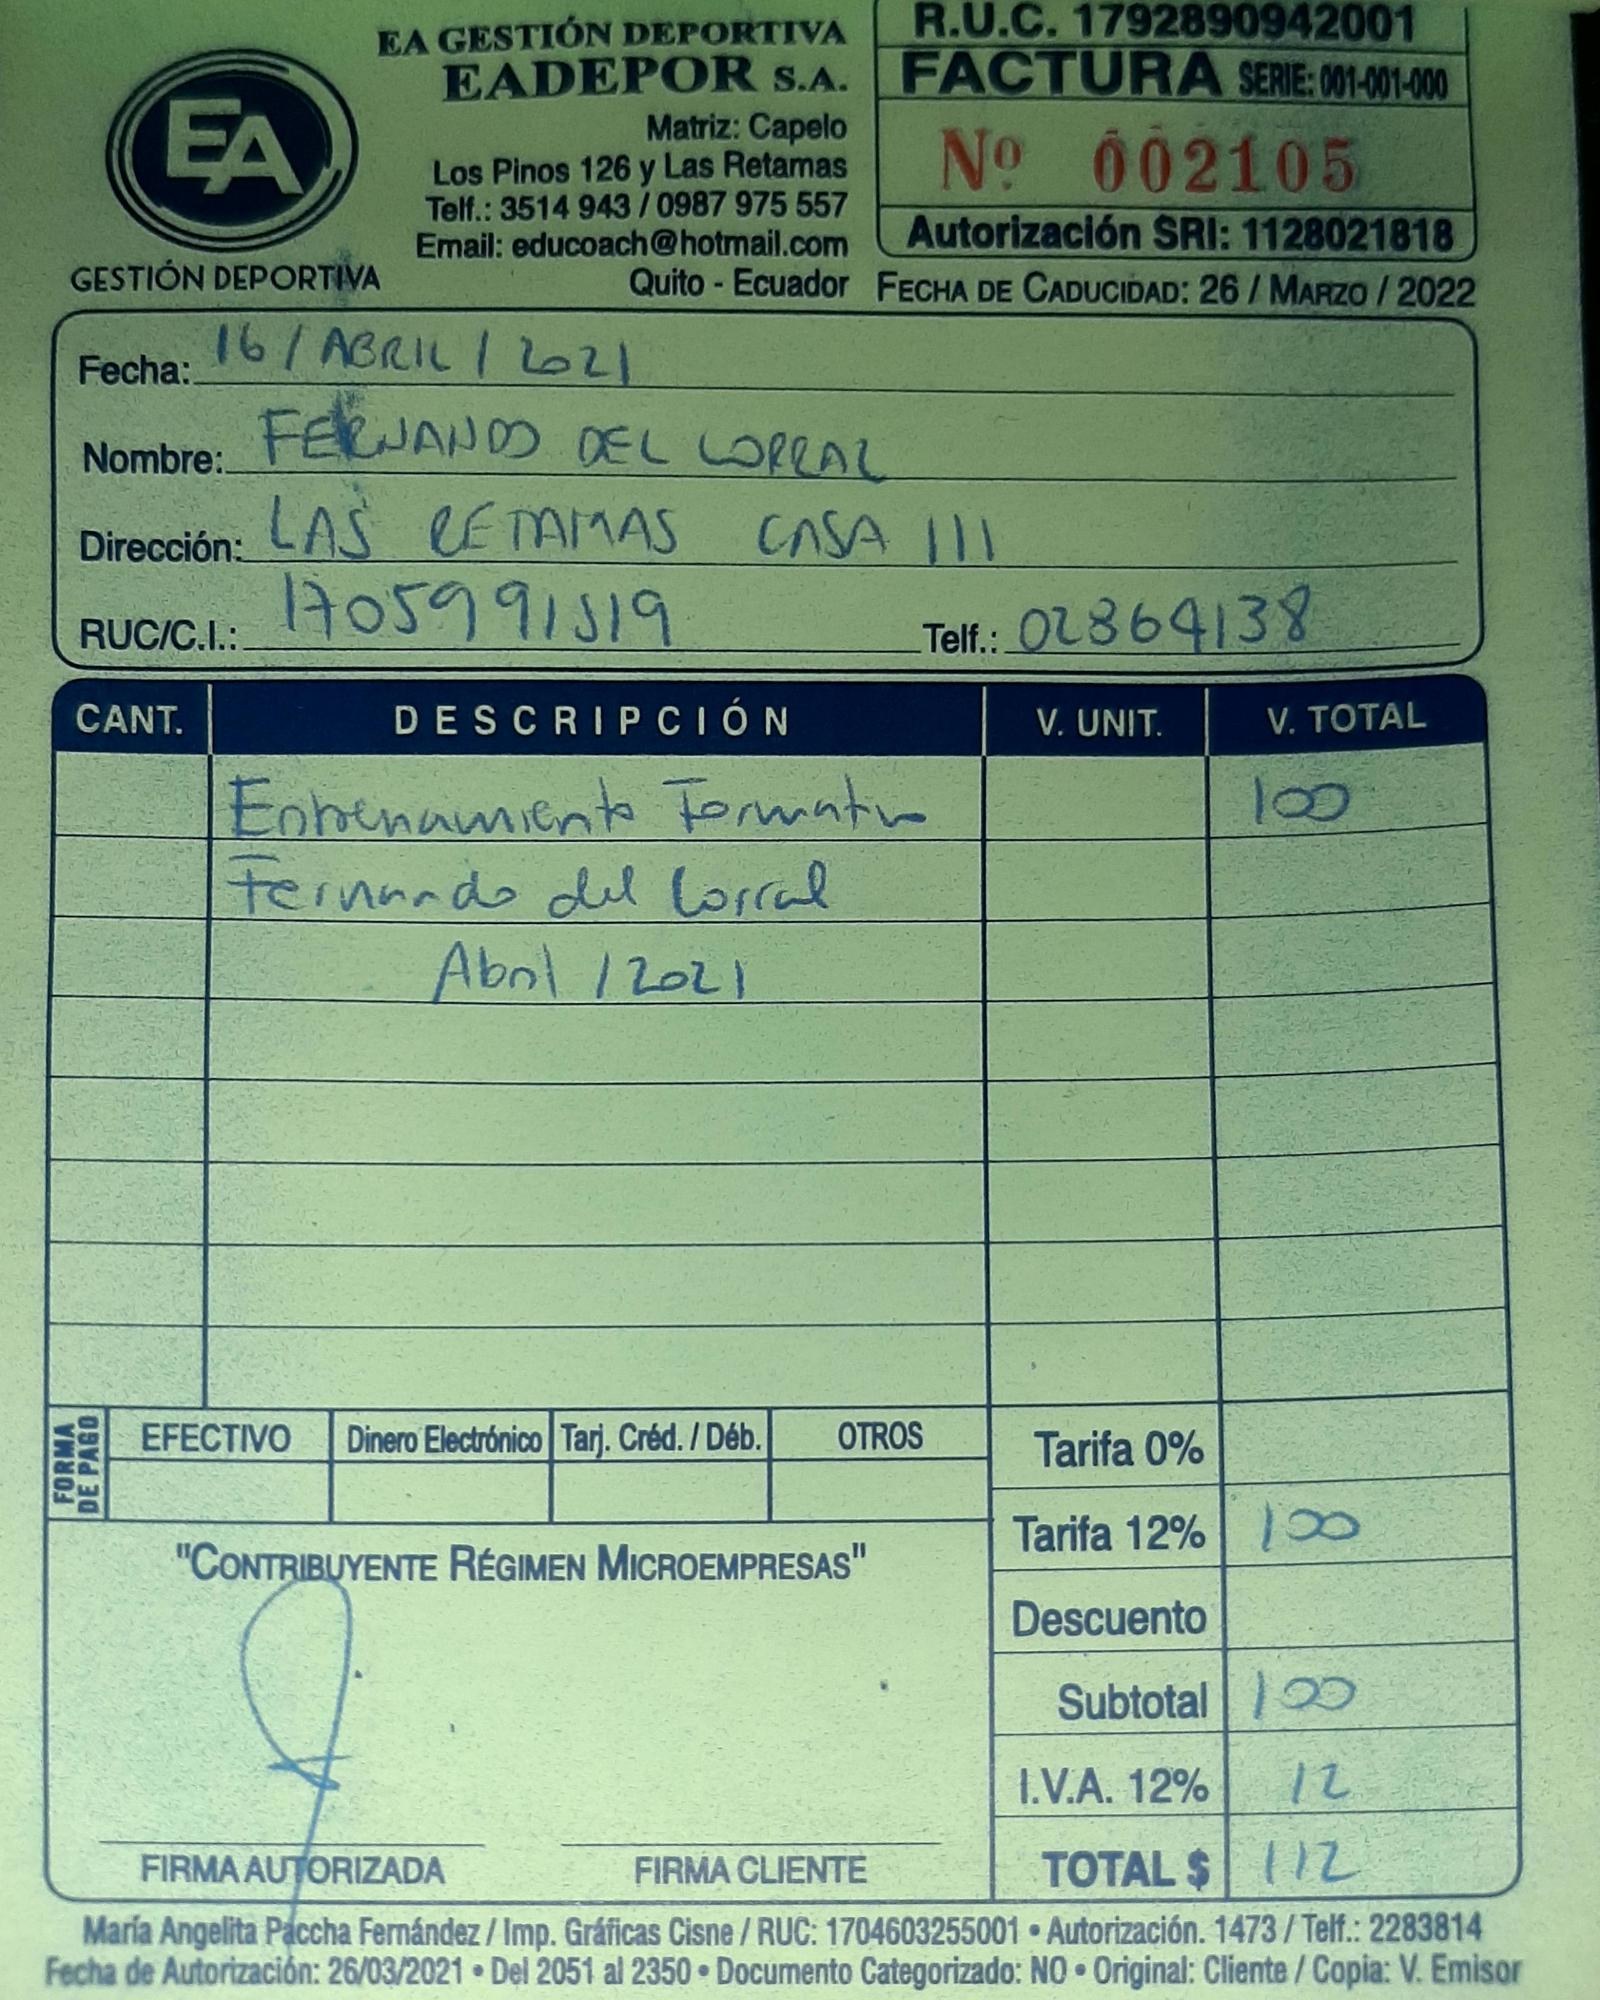 EA GESTIÓN DEPORTIVA
EADEPOR S.A.
Matriz: Capelo
Los Pinos 126 y Las Retamas
Telf.: 3514 943 / 0987 975 557
Email: educoach@hotmail.com
Quito - Ecuador
EA
GESTIÓN DEPORTIVA
R.U.C. 1792890942001
FACTURA SERIE: 001-001-000
Nº 002105
Autorización SRI: 1128021818
FECHA DE CADUCIDAD: 26 / MARZO / 2022
Fecha: 16 / ABRIL / 2021
Nombre: FERNANDO DEL CORRAL
Dirección: LAS RETAMAS CASA 111
RUC/C.I.: 1705991519 Telf.: 02864138
CANT. DESCRIPCIÓN V. UNIT. V. TOTAL
Entrenamiento Formativo 100
Fernando del Corral
Abril / 2021
FORMA DE PAGO EFECTIVO Dinero Electrónico Tarj. Créd. / Déb. OTROS
Tarifa 0%
Tarifa 12% 100
"CONTRIBUYENTE RÉGIMEN MICROEMPRESAS"
Descuento
Subtotal 100
I.V.A. 12% 12
TOTAL $ 112
FIRMA AUTORIZADA FIRMA CLIENTE
María Angelita Paccha Fernández / Imp. Gráficas Cisne / RUC: 1704603255001 • Autorización. 1473 / Telf.: 2283814
Fecha de Autorización: 26/03/2021 • Del 2051 al 2350 • Documento Categorizado: NO • Original: Cliente / Copia: V. Emisor